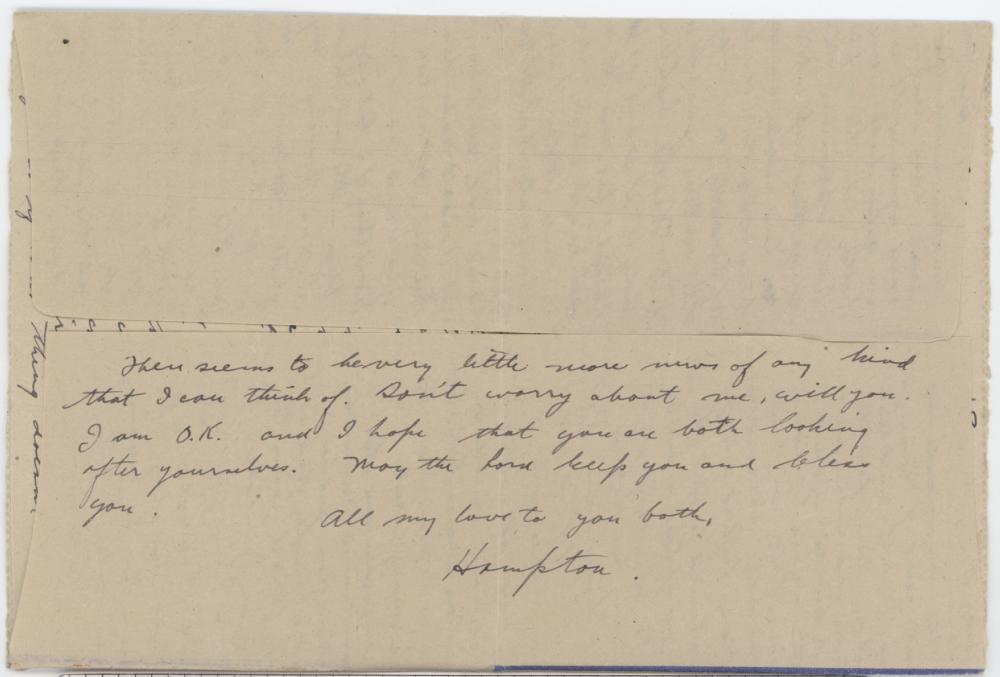 There seems to be very little more news of any kind
that I can think of. Don't worry about me, will you.
I am O.K. and I hope that you are both looking
after yourselves. May the Lord keep you and bless
you.
All my love to you both,
Hampton.
thing